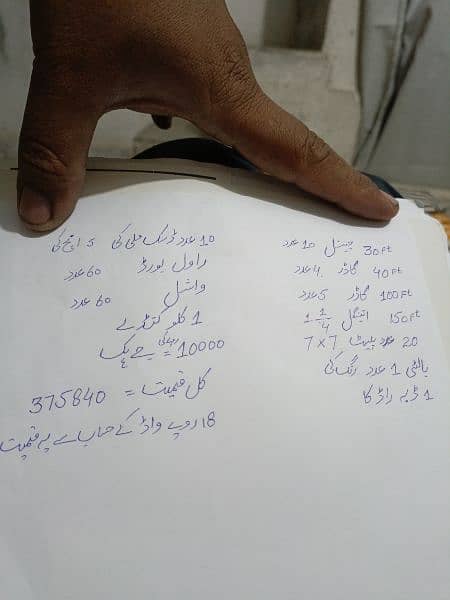 30 Ft چینل 10 عدد
40 Ft گاڈر 4 عدد
100 Ft گاڈر 5 عدد
150 Ft اینگل 1 1/4
20 عدد پلیٹ 7x7
بالٹی 1 عدد رنگ کی
1 ڈبہ راڈ کا
10 عدد ڈسک جلی کی 5 انچ کی
راول بورڈ 60 عدد
واشل 60 عدد
1 کلو کنڈے
10000 =
کل قمیت = 375840
18 روپے واڈ کے حساب سے یہ قمیت